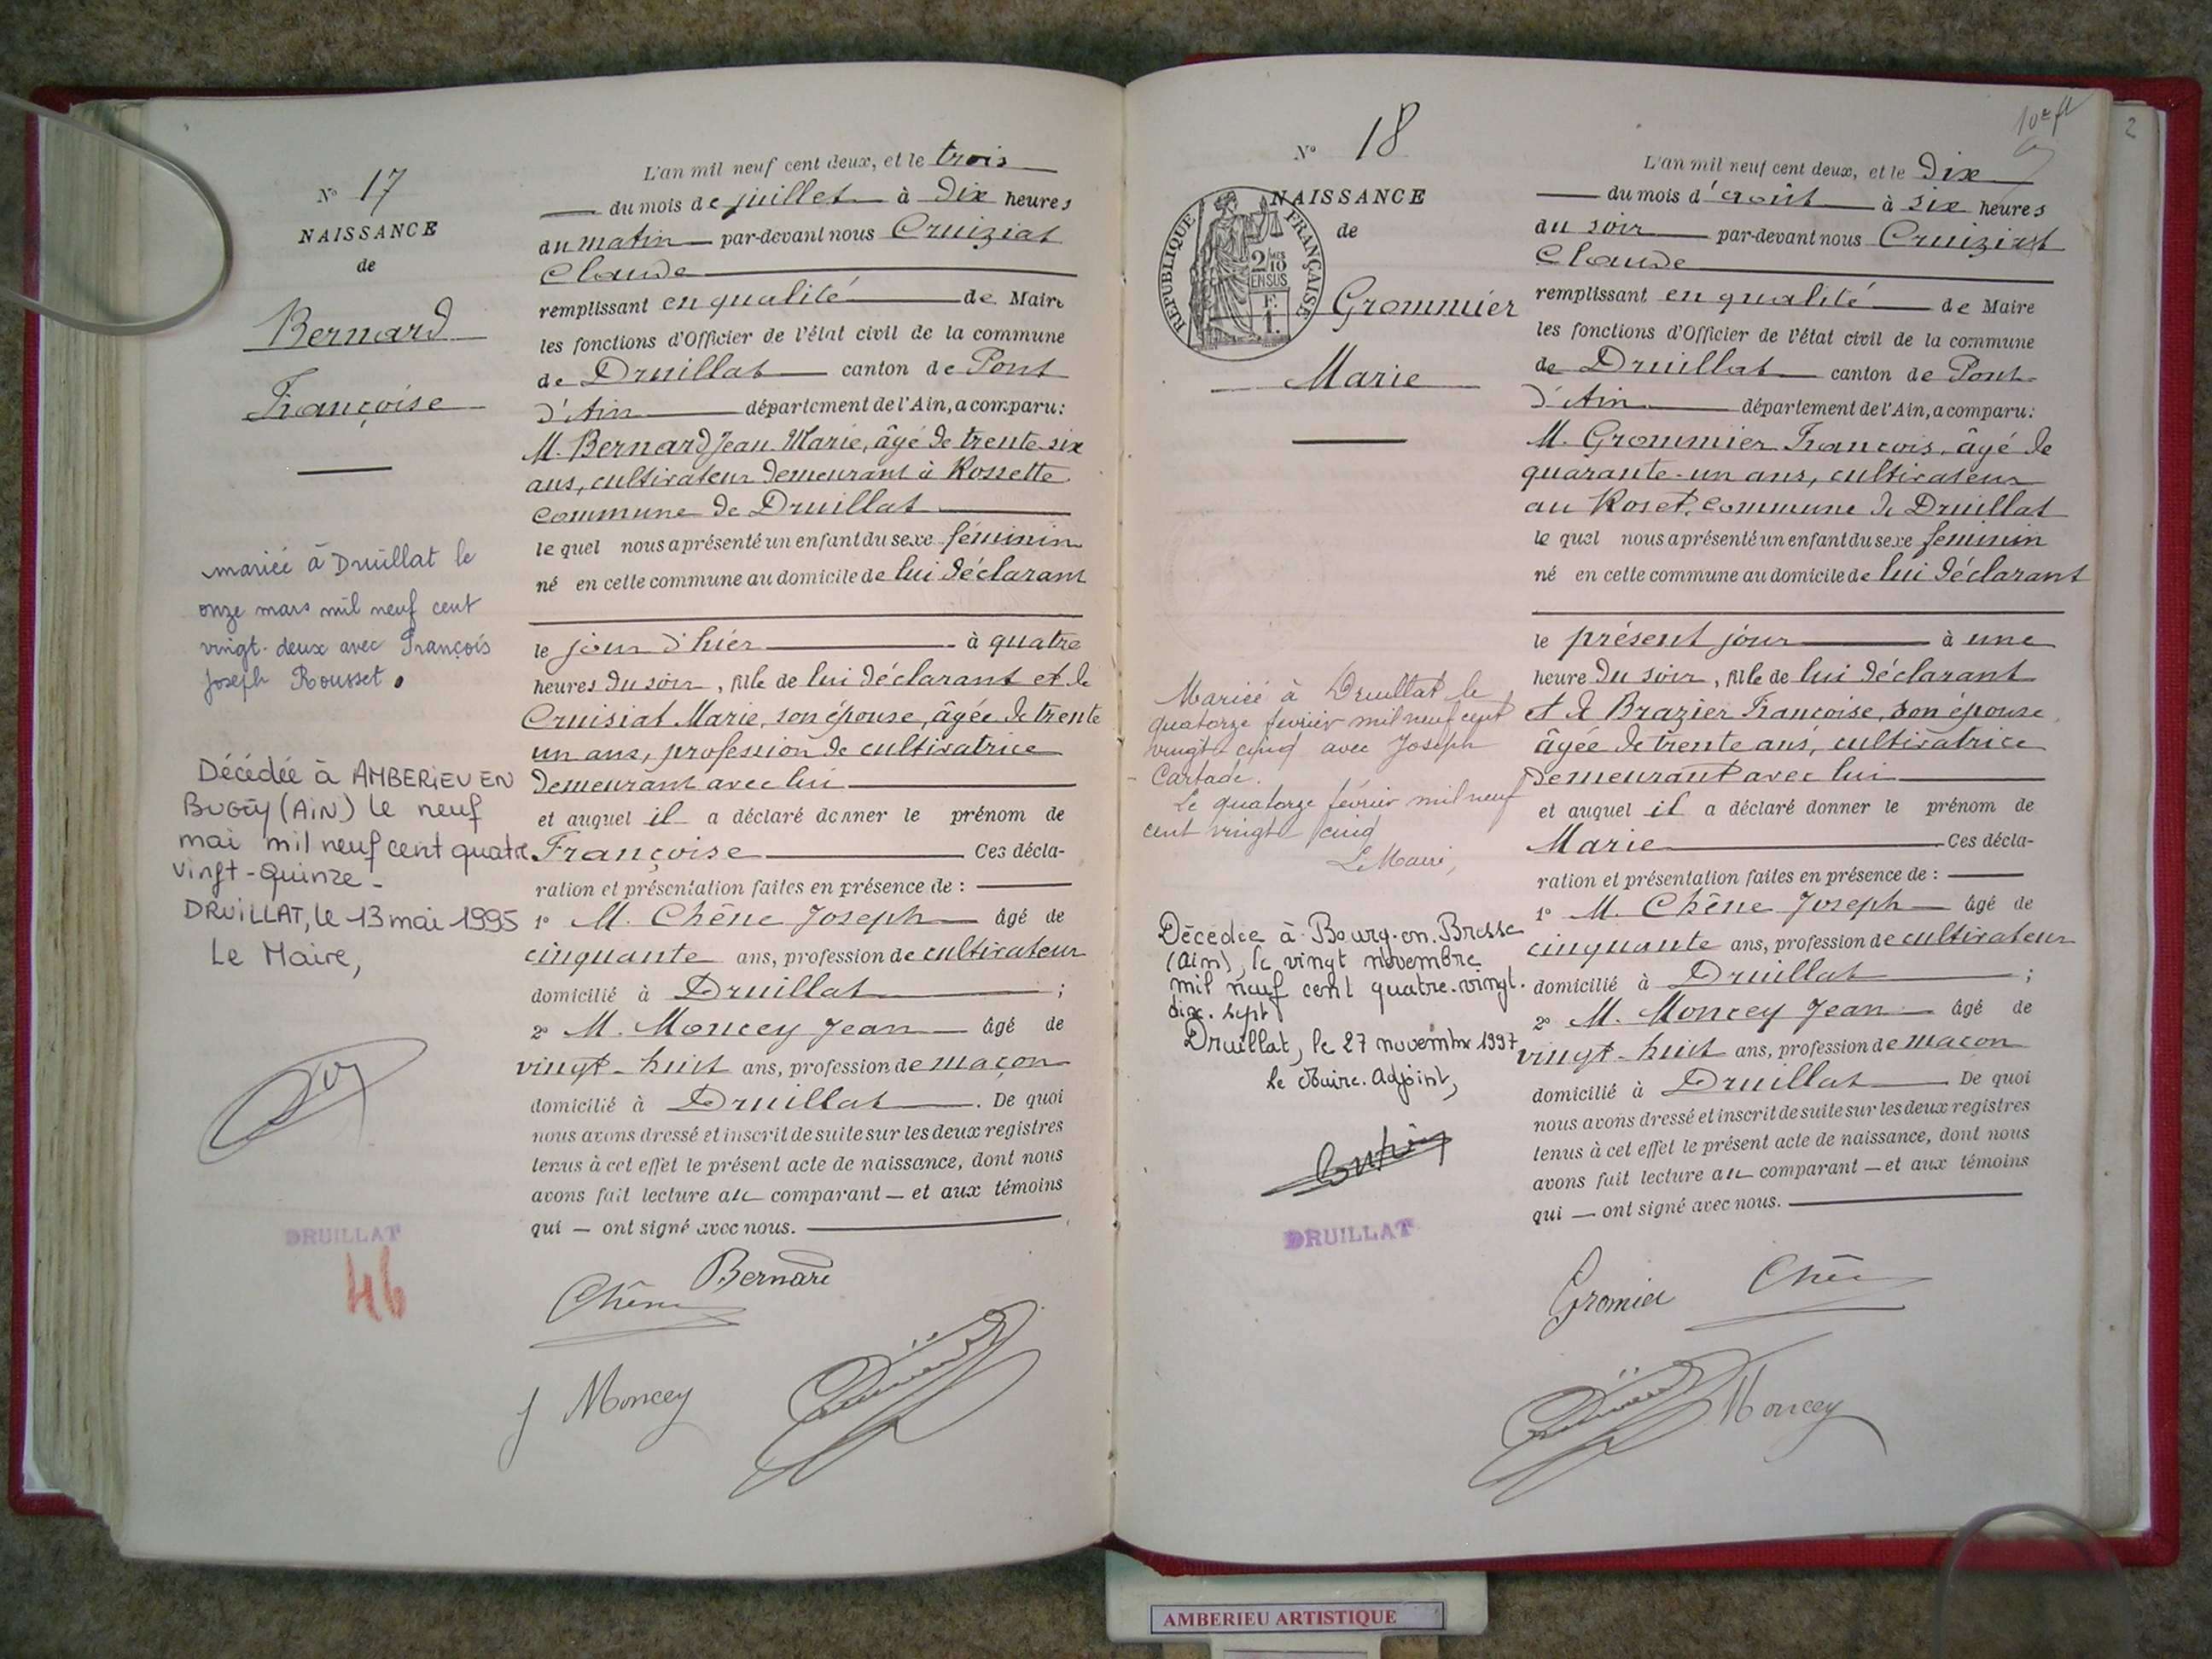 N° 17
NAISSANCE
de
Bernard
Françoise
mariée à Druillat le
onze mars mil neuf cent
vingt-deux avec François
Joseph Rousset.
Décédée à AMBERIEU EN
BUGEY (AIN) le neuf
mai mil neuf cent quatre
vingt-Quinze-
DRUILLAT, le 13 mai 1995
Le Maire,
DRUILLAT
46
L'an mil neuf cent deux, et le trois
du mois de juillet à dix heures
du matin par-devant nous Cruiziat
Claude
remplissant en qualité de Maire
les fonctions d'Officier de l'état civil de la commune
de Druillat canton de Pont
d'Ain département de l'Ain, a comparu:
M. Bernard Jean Marie, âgé de trente six
ans, cultivateur demeurant à Rossette
commune de Druillat
lequel nous a présenté un enfant du sexe féminin
né en cette commune au domicile de lui déclarant
le jour d'hier à quatre
heures du soir, fille de lui déclarant et de
Cruisiat Marie, son épouse, âgée de trente
un ans, profession de cultivatrice
demeurant avec lui
et auquel il a déclaré donner le prénom de
Françoise Ces décla-
ration et présentation faites en présence de :
1° M. Chêne Joseph âgé de
cinquante ans, profession de cultivateur
domicilié à Druillat ;
2° M. Moncey Jean âgé de
vingt-huit ans, profession de maçon
domicilié à Druillat. De quoi
nous avons dressé et inscrit de suite sur les deux registres
tenus à cet effet le présent acte de naissance, dont nous
avons fait lecture au comparant — et aux témoins
qui — ont signé avec nous.
Chêne Bernard
J Moncey
N° 18
NAISSANCE
de
REPUBLIQUE FRANÇAISE
2/10 MES
EN SUS
F.
1.
Grommier
Marie
Mariée à Druillat le
quatorze février mil neuf cent
vingt cinq avec Joseph
Cartade.
Le quatorze février mil neuf
cent vingt cinq
Le Maire,
Décédée à Bourg-en-Bresse
(Ain), le vingt novembre
mil neuf cent quatre-vingt-
dix-sept
Druillat, le 27 novembre 1997
Le Maire-Adjoint,
DRUILLAT
2
L'an mil neuf cent deux, et le dix
du mois d'août à six heures
du soir par-devant nous Cruiziat
Claude
remplissant en qualité de Maire
les fonctions d'Officier de l'état civil de la commune
de Druillat canton de Pont-
d'Ain département de l'Ain, a comparu:
M. Grommier François, âgé de
quarante-un ans, cultivateur
au Roset, commune de Druillat
lequel nous a présenté un enfant du sexe féminin
né en cette commune au domicile de lui déclarant
le présent jour à une
heure du soir, fille de lui déclarant
et de Brazier Françoise, son épouse
âgée de trente ans, cultivatrice
demeurant avec lui
et auquel il a déclaré donner le prénom de
Marie Ces décla-
ration et présentation faites en présence de :
1° M. Chêne Joseph âgé de
cinquante ans, profession de cultivateur
domicilié à Druillat ;
2° M. Moncey Jean âgé de
vingt-huit ans, profession de maçon
domicilié à Druillat De quoi
nous avons dressé et inscrit de suite sur les deux registres
tenus à cet effet le présent acte de naissance, dont nous
avons fait lecture au comparant — et aux témoins
qui — ont signé avec nous.
Gromier Chêne
Moncey
AMBERIEU ARTISTIQUE